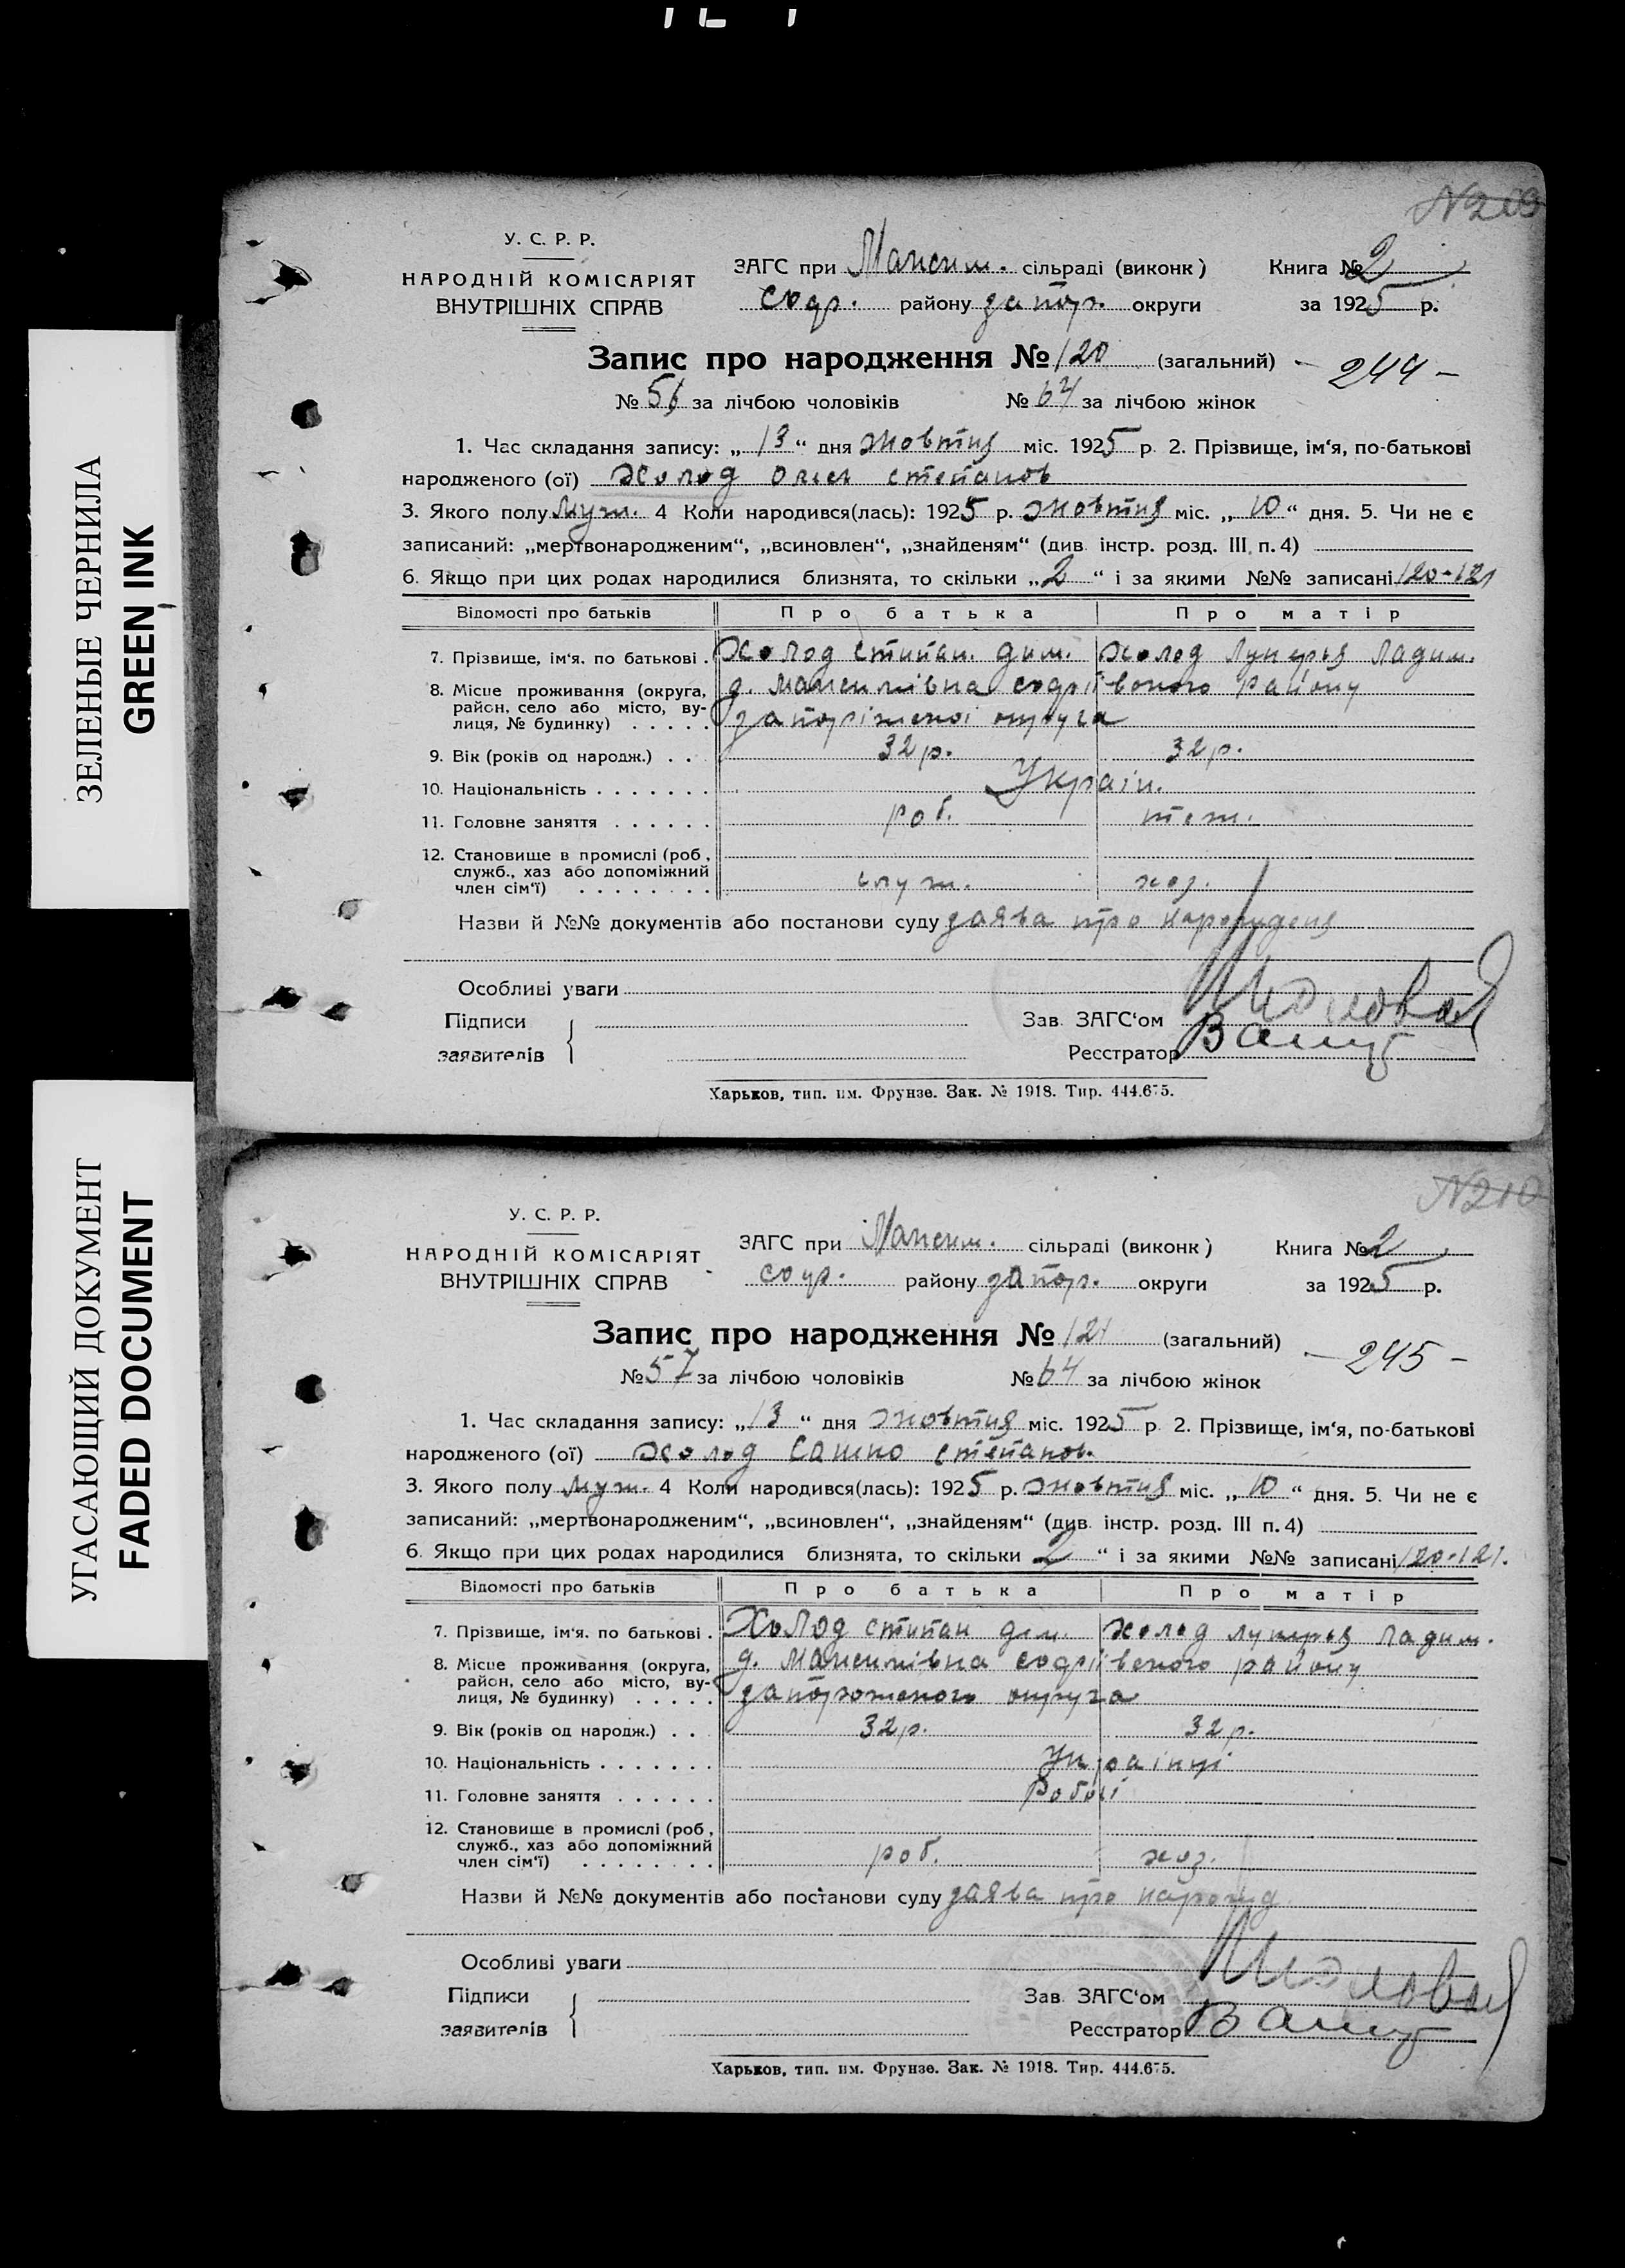 ЗЕЛЕНЫЕ ЧЕРНИЛА
GREEN INK
УГАСАЮЩИЙ ДОКУМЕНТ
FADED DOCUMENT
№209
У. С. Р. Р.
НАРОДНІЙ КОМІСАРІЯТ
ВНУТРІШНІХ СПРАВ
ЗАГС при Максим. сільраді (виконк) Книга № 2
софр. району запор. округи за 1925 р.
Запис про народження № 120 (загальний) - 244 -
№ 56 за лічбою чоловіків № 64 за лічбою жінок
1. Час складання запису: „13“ дня жовтня міс. 1925 р 2. Прізвище, ім‘я, по-батькові
народженого (ої) Холод Олек степанов
3. Якого полу муж. 4 Коли народився(лась): 1925 р. жовтня міс. „10“ дня. 5. Чи не є
записаний: „мертвонародженим“, „всиновлен“, „знайденям“ (див. інстр. розд. III, п. 4)
6. Якщо при цих родах народилися близнята, то скільки „2“ і за якими №№ записані 120-121
Відомості про батьків Про батька Про матір
7. Прізвище, ім‘я. по батькові . Холод степан. дим. холод лукерья ладим.
8. Місце проживання (округа, район, село або місто, вулиця, № будинку) . . . . . д. максимівка софріївского району
запоріжскої округа
9. Вік (років од народж.) . . 32 р. 32 р.
10. Національність . . . . . . . Україн.
11. Головне заняття . . . . . . роб. теж.
12. Становище в промислі (роб, служб., хаз або допоміжний член сім‘ї) . . . . . . . . служ. хоз.
Назви й №№ документів або постанови суду заява про народжденя
Особливі уваги
Підписи
заявителів
Зав. ЗАГС‘ом
Реєстратор
Харьков, тип. им. Фрунзе. Зак. № 1918. Тир. 444.675.
№210
У. С. Р. Р.
НАРОДНІЙ КОМІСАРІЯТ
ВНУТРІШНІХ СПРАВ
ЗАГС при Максим. сільраді (виконк) Книга № 2
софр. району запор. округи за 1925 р.
Запис про народження № 121 (загальний) - 245 -
№ 57 за лічбою чоловіків № 64 за лічбою жінок
1. Час складання запису: „13“ дня жовтня міс. 1925 р 2. Прізвище, ім‘я, по-батькові
народженого (ої) Холод Сашко степанов.
3. Якого полу муж. 4 Коли народився(лась): 1925 р. жовтня міс. „10“ дня. 5. Чи не є
записаний: „мертвонародженим“, „всиновлен“, „знайденям“ (див. інстр. розд. III п. 4)
6. Якщо при цих родах народилися близнята, то скільки 2“ і за якими №№ записані 120-121.
Відомості про батьків Про батька Про матір
7. Прізвище, ім‘я. по батькові . Холод степан дем. холод лукерья ладим.
8. Місце проживання (округа, район, село або місто, вулиця, № будинку) . . . . . д. Максимівка софріївского району
запорожского округа
9. Вік (років од народж.) . . 32 р. 32 р.
10. Національність . . . . . . . українці
11. Головне заняття . . . . . . Робочі
12. Становище в промислі (роб, служб., хаз або допоміжний член сім‘ї) . . . . . . . . роб. хоз.
Назви й №№ документів або постанови суду заява про нарожд.
Особливі уваги
Підписи
заявителів
Зав. ЗАГС‘ом
Реєстратор
Харьков, тип. им. Фрунзе. Зак. № 1918. Тир. 444.675.